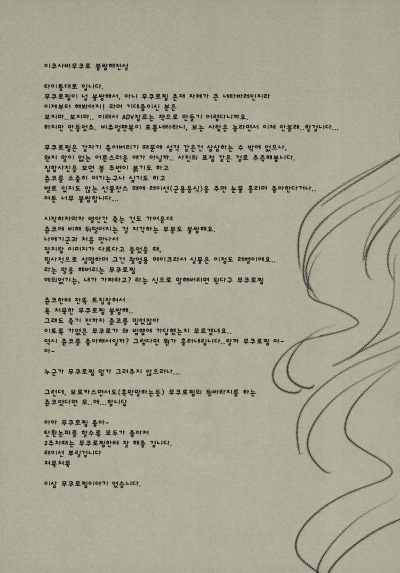 이쿠사바무쿠로 불쌍해전설
타이틀대로 입니다.
무쿠로찡이 넘 불쌍해서, 아니 무쿠로찡 존재 자체가 큰 네타바레인지라
이제부터 해봐야지! 라며 기대중이신 분은
보지마..보지마.. 이래서 ADV장르는 책으로 만들기 어렵다니까요.
하지만 만들었죠. 비주얼팬북이 표롤네타라니, 보는 사람은 놀라면서 이제 안볼래..할겁니다...
무쿠로찡은 갑자기 죽어버리기 때문에 성격 같은건 상상하는 수 밖에 없으나,
왠지 말이 없는 어른스러운 애가 아닐까.. 사진의 표정 같은 걸로 추측해봅니다.
집합사진을 보면 볼 주변이 붉기도 하고
쥰코를 소중히 여기는구나 싶기도 하고
별로 인기도 않는 선물찬스 때에 레이션(군용음식)을 주면 눈물 흘리며 좋아한다거나..
여튼 너무 불쌍합니다...
시작하자마자 평안간 죽는 것도 가여운데
쥰코에 비해 뒤떨어지는 걸 자각하는 부분도 불쌍해요.
나에기군과 처음 만나서
잡지랑 이미지가 다르다고 들었을 때,
필사적으로 설명하며 그건 촬영용 메이크라서 실물은 이정도 레벨이에요..
라는 말을 해버리는 무쿠로찡
에의없기는, 내가 가짜라고? 라는 식으로 말해버리면 된다구 무쿠로찡
쥰코한테 잔뜩 트집잡혀서
욕 처묵한 무쿠로찡 불쌍해..
그래도 죽기 전까지 쥰코를 믿었잖아
이토록 가엾은 무쿠로가 왜 범행에 가담했는지 모르겠네요..
역시 쥰코를 좋아해서일까? 그렇다면 뭔가 흘러내립니다..랄까 무쿠로찡 아-
아-
누군가 무쿠로찡 망가 그려주지 않으려나...
그런데, 보로카스면서도(혼만말하는듯) 무쿠로찡의 뒷바라지를 하는
쥰코였다면 모..에...합니당
아아 무쿠로찡 좋아-
탄환논파를 할수록 모두가 좋아져
2주차때는 무쿠로찡한테 잘 해줄 겁니다.
레이션 뿌릴겁니다
처묵처묵
이상 무쿠로찡이야기 였습니다.